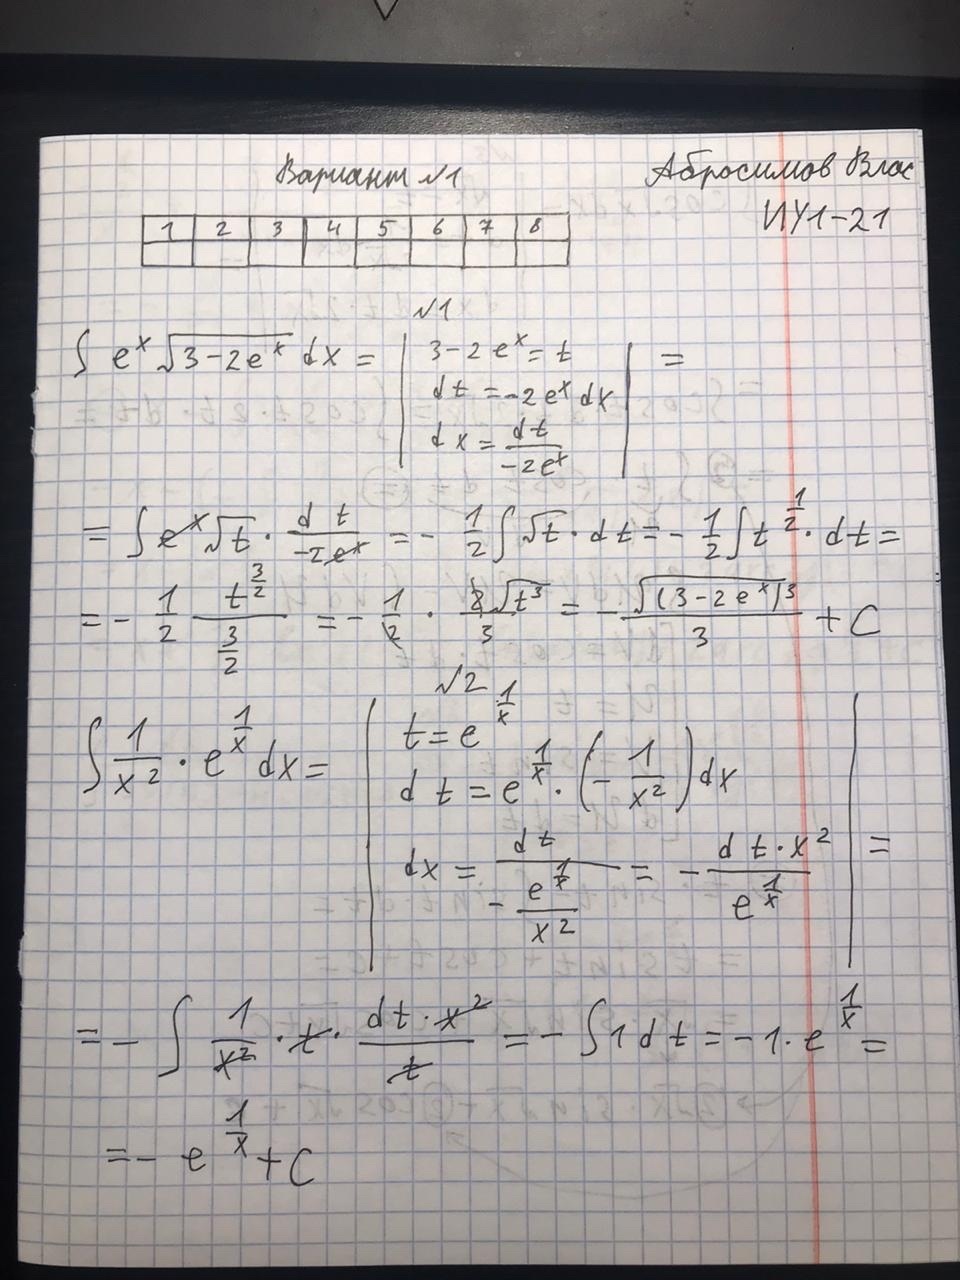 Вариант №1
Абросимов Влас
ИУ1-21
1 2 3 4 5 6 7 8
№1
∫ e^x √(3-2e^x) dx = | 3-2e^x = t | =
dt = -2e^x dx
dx = dt/(-2e^x)
= ∫ e^x √t · dt/(-2e^x) = - 1/2 ∫ √t · dt = - 1/2 ∫ t^(1/2) · dt =
= - 1/2 t^(3/2)/(3/2) = - 1/2 · 2√t^3/3 = - √((3-2e^x)^3)/3 + C
№2
∫ 1/x^2 · e^(1/x) dx = | t = e^(1/x)
dt = e^(1/x) · (- 1/x^2) dx
dx = dt/(- e^(1/x)/x^2) = - dt·x^2/e^(1/x) | =
= - ∫ 1/x^2 · t · dt·x^2/t = - ∫ 1 dt = - 1 · e^(1/x) =
= - e^(1/x) + C